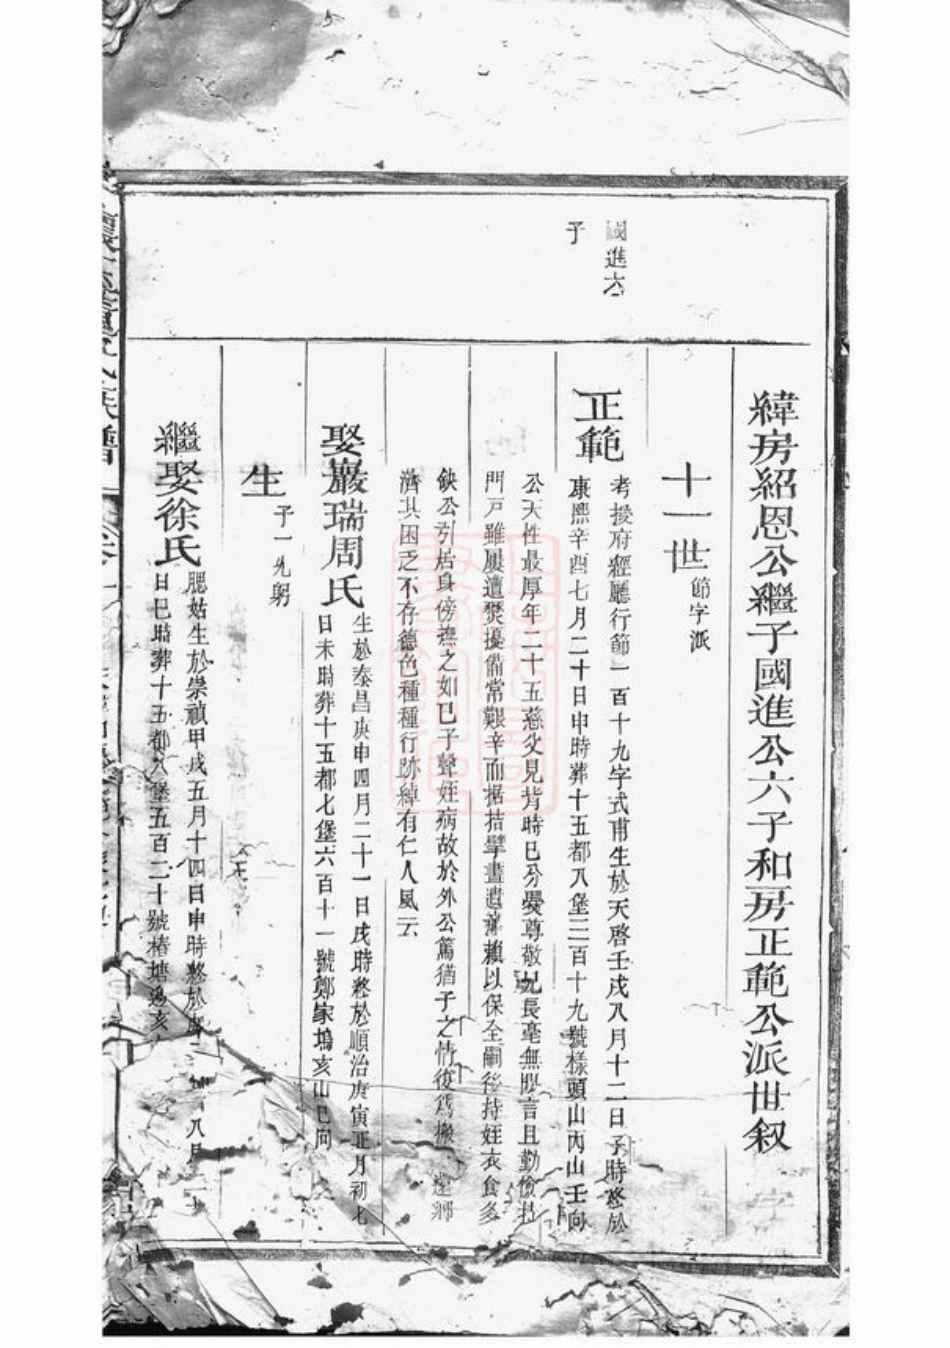 緯房紹恩公繼子國進公六子和房正範公派世叙
十一世
節字派
國進六
子
正範
考授府經廳行節一百十九字式甫生於天啓壬戌八月十二日子時終於
康熙辛酉七月二十日申時葬十五都八堡三百十九號樣頭山丙山壬向
公天性最厚年二十五慈父見背時已分爨尊敬兄長毫無慢言且勤儉持
門戸雖屢遭焚擾備常艱辛而据拮擘畫遺業賴以保全嗣後持姪衣食多
缺公引居身傍撫之如已子聲姪病故於外公篤猶子之情復爲搬 還鄉
濟其困乏不存德色種種行跡綽有仁人風云
娶巖瑞周氏
生於泰昌庚申四月二十一日戌時終於順治庚寅正月初七
日未時葬十五都七堡六百十一號鄭家塢亥山巳向
生
子一允躬
繼娶徐氏
腮姑生於崇禎甲戌五月十四日申時終於康 八月二十
日巳時葬十五都八堡五百二十號樁塘邊亥